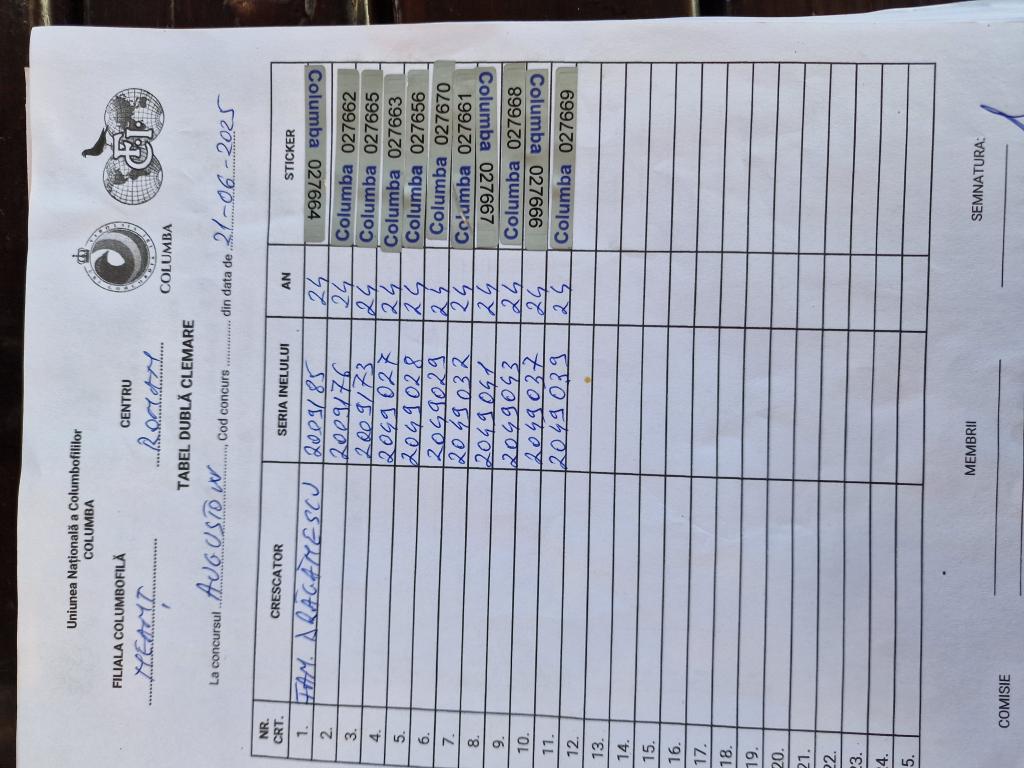 Uniunea Națională a Columbofililor
COLUMBA
COLUMBA
FCI
FILIALA COLUMBOFILĂ
CENTRU
NEAMȚ
ROMAN
TABEL DUBLĂ CLEMARE
La concursul AUGUSTOW, Cod concurs din data de 21-06-2025
NR. CRT. CRESCATOR SERIA INELULUI AN STICKER
1. FAM. DRĂGĂNESCU 2009185 24 Columba 027664
2. 2009176 24 Columba 027662
3. 2009173 24 Columba 027665
4. 2049027 24 Columba 027663
5. 2049028 24 Columba 027656
6. 2049029 24 Columba 027670
7. 2049032 24 Columba 027661
8. 2049041 24 Columba 027667
9. 2049043 24 Columba 027668
10. 2049037 24 Columba 027666
11. 2049039 24 Columba 027669
12.
13.
14.
15.
16.
17.
18.
19.
20.
21.
22.
23.
4.
5.
COMISIE MEMBRII SEMNATURA: